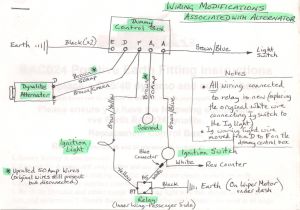 Wiring Modifications
Associated with Alternator
Dummy
Control Box
Earth
Black (x2)
E D F A A₁
Brown/Blue
Light
Switch
Brown/
Dynalite
Alternator
Brown/Green
Notes
All wiring connected
to relay is new, replacing
the original white wire
connecting Ig switch to
the Ig light.
Ig warning light wire
moved from D to F on the
dummy control box
Solenoid
Ignition
Light
Brown/Yellow
Brown/Blue
Yellow
Bullet
Connector
Ignition Switch
White
Rev Counter
Black
Earth (On Wiper Motor
under dash)
Relay
(Inner Wing-Passenger Side)
* Uprated 50 Amp Wires
(original wires still present
but disconnected)